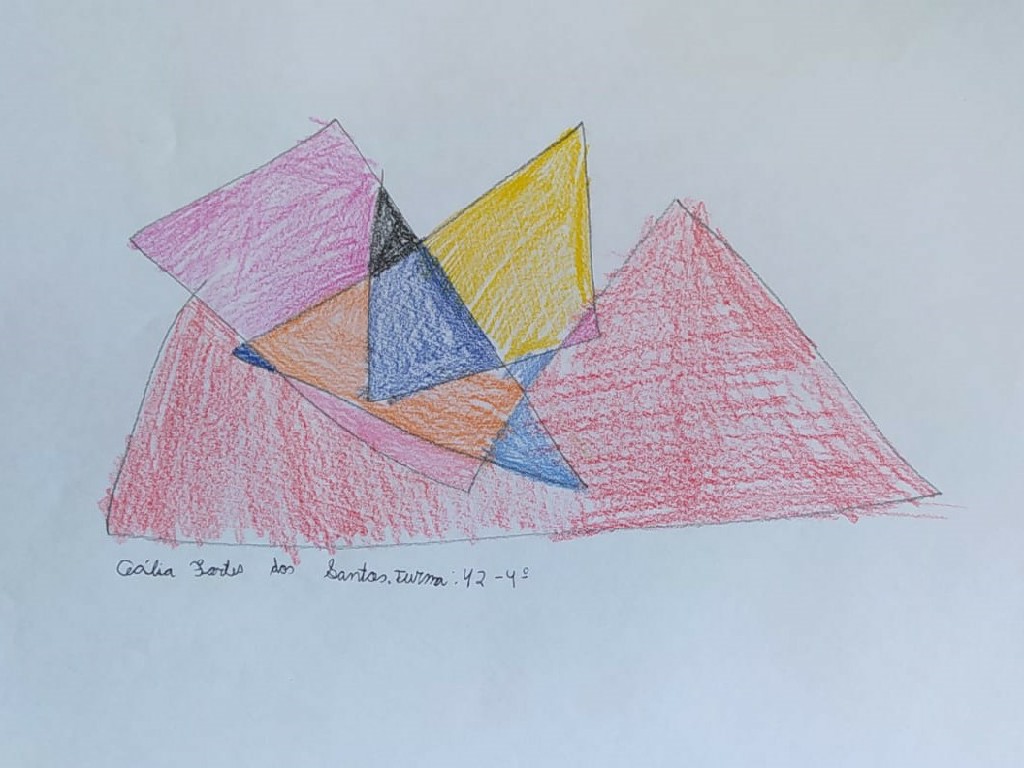 Cecília Fortes dos Santos. Turma: 42 - 4º